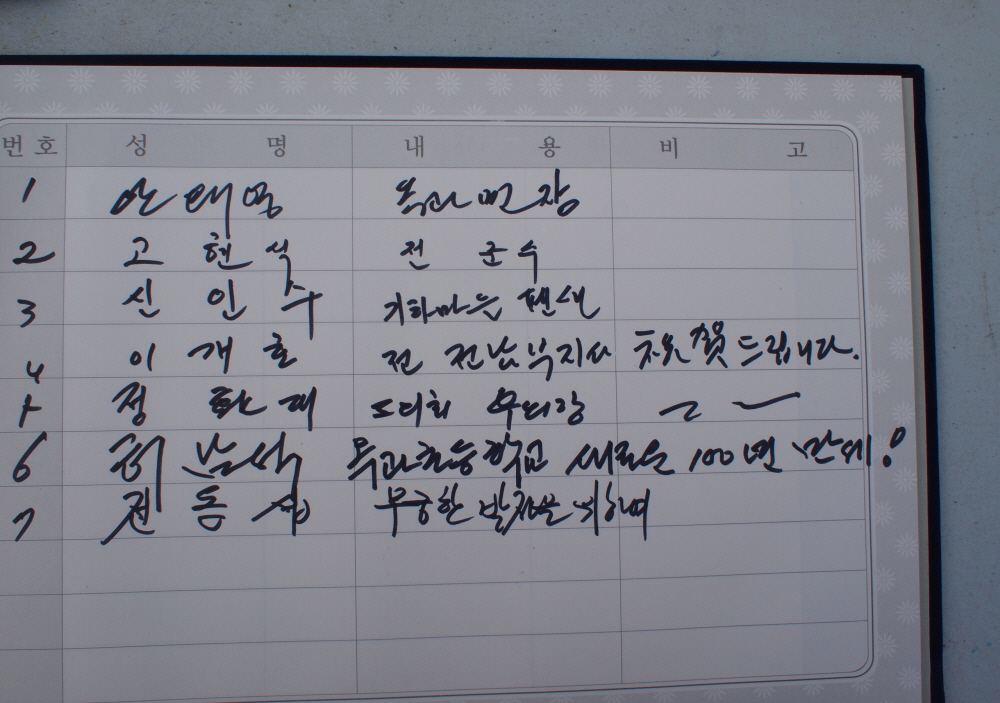 번호 성 명 내 용 비 고
1 안태명 옥과면장
2 고현석 전 군수
3 신인수 기차마을 펜션
4 이개호 전 전남부지사 祝賀드립니다.
5 정환대 도의회 우의장
6 허남석 옥과초등학교 새로운 100년 만세!
7 전동 무궁한 발전을 위하여